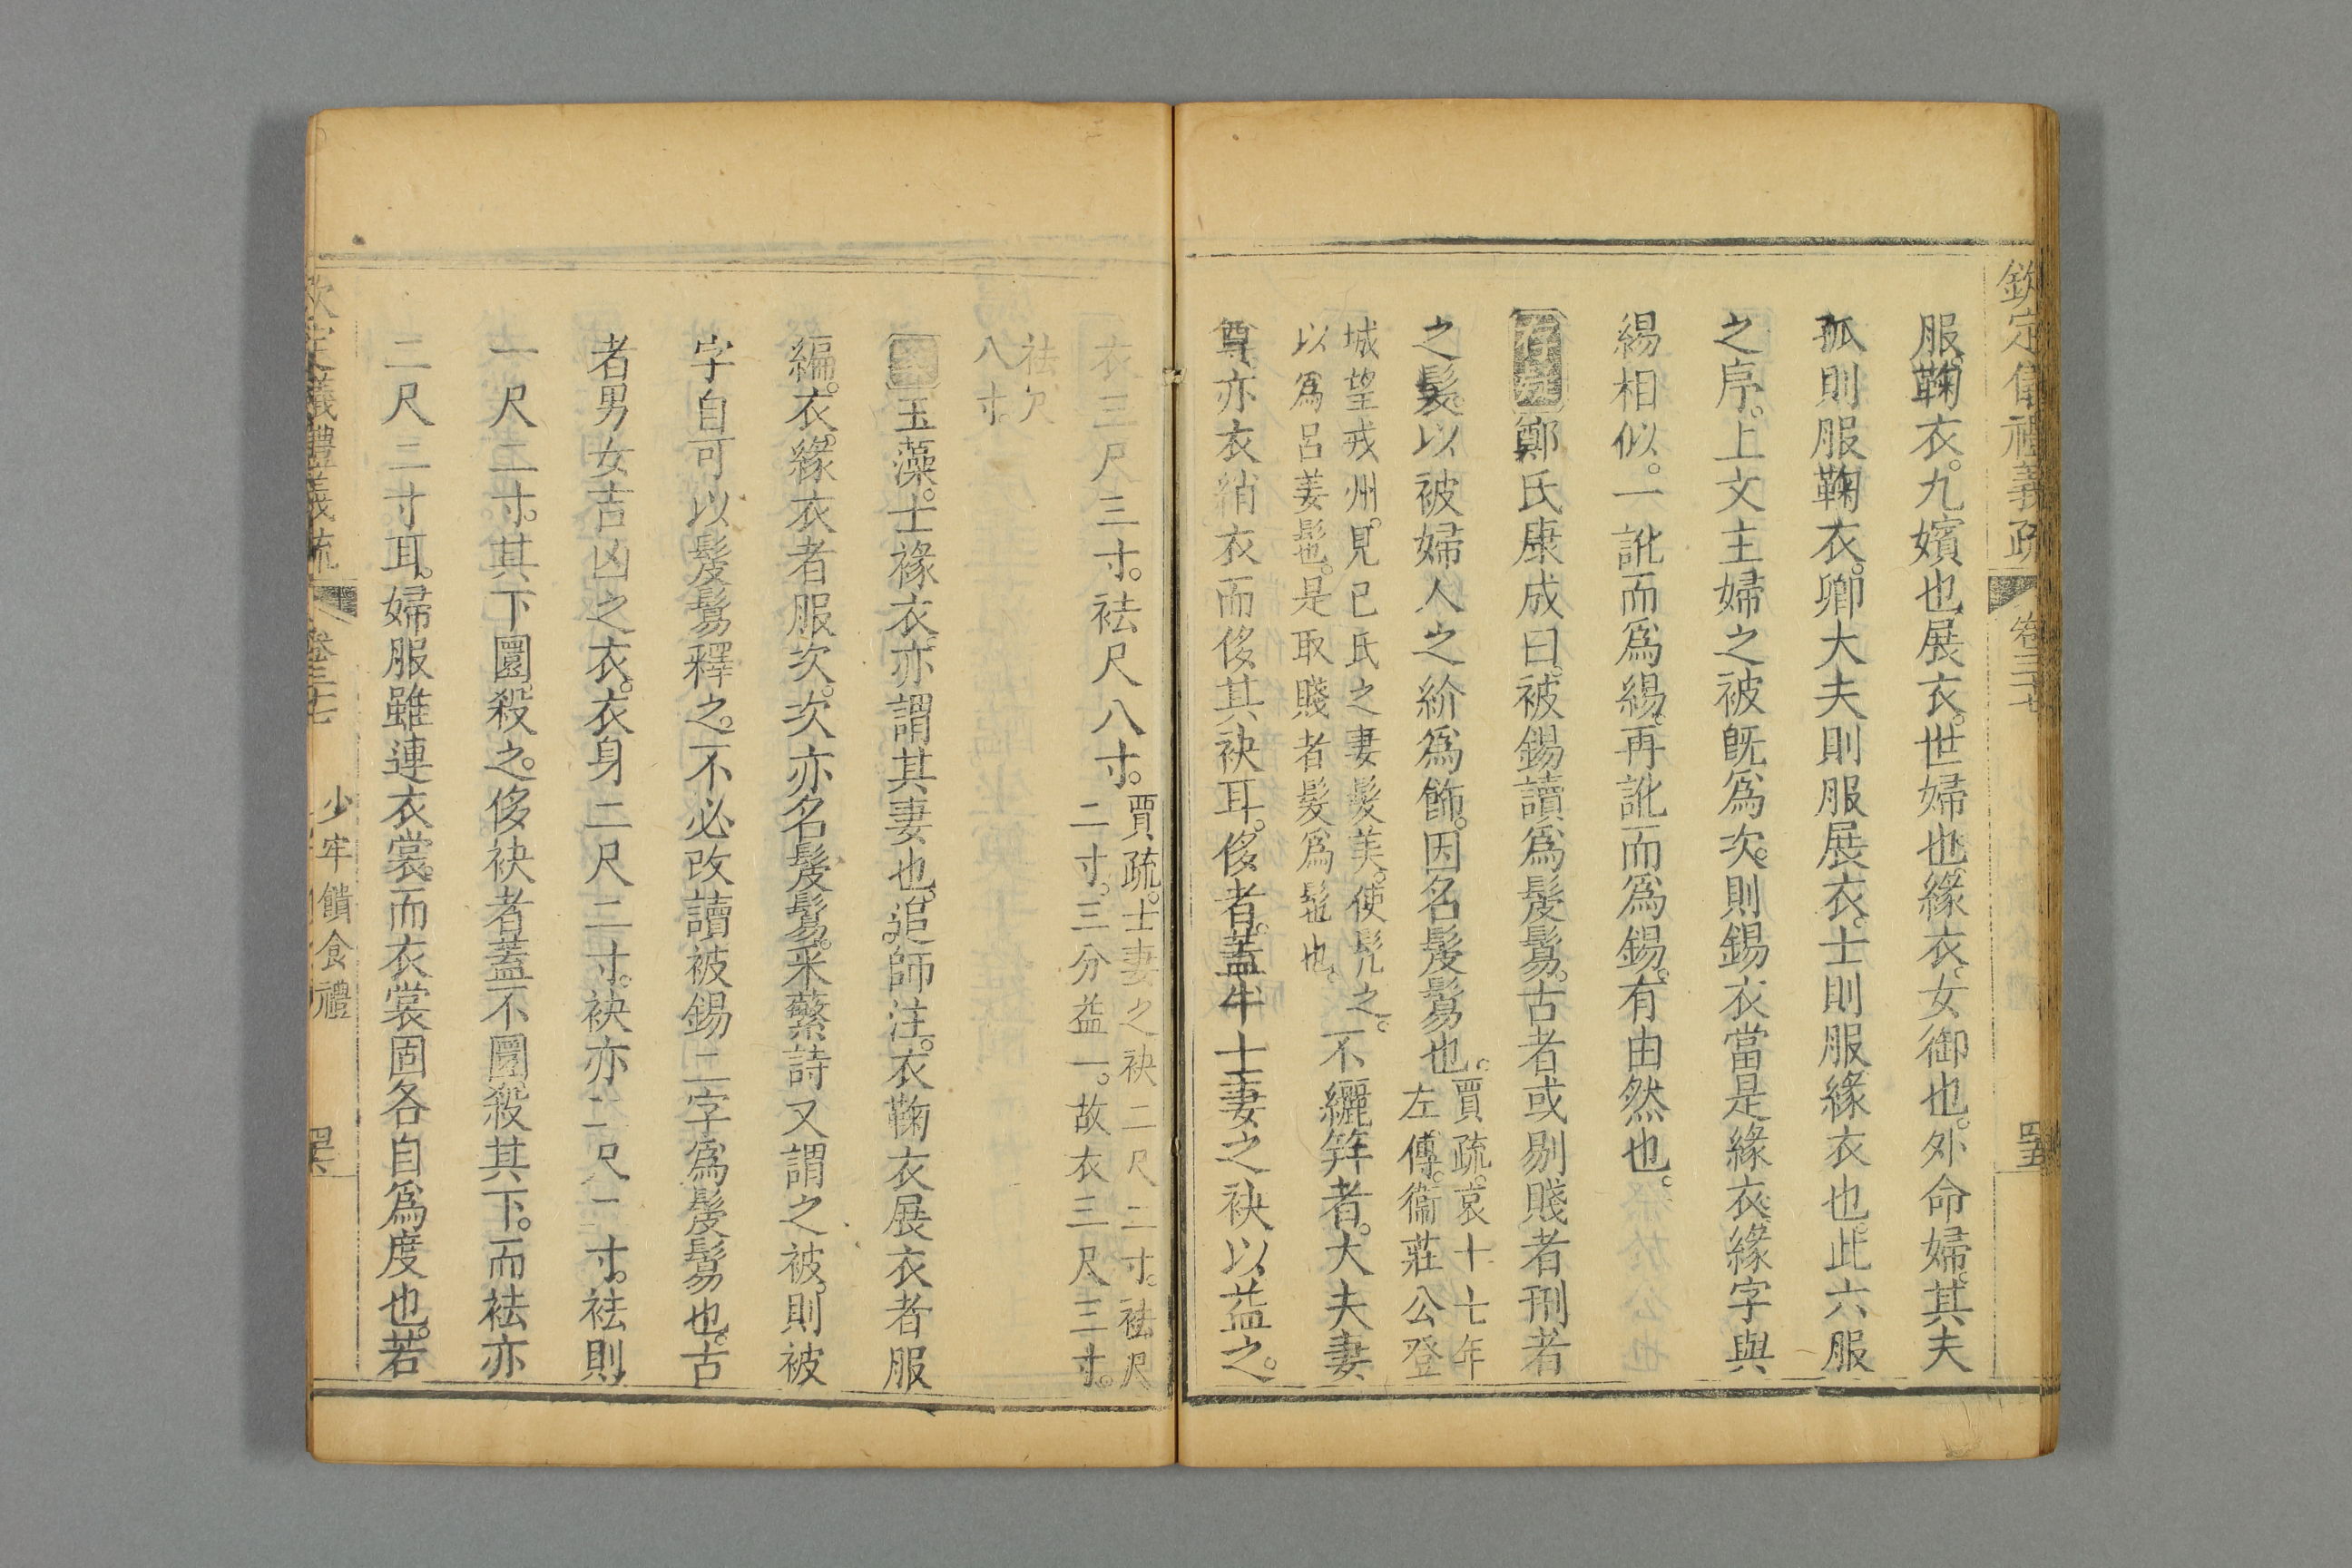 欽定儀禮義疏 卷三十七 四五
服鞠衣。九嬪也。展衣。世婦也。緣衣。女御也。外命婦。其夫
孤則服鞠衣。卿大夫則服展衣。士則服緣衣也。此六服
之序。上文主婦之被旣爲次。則錫衣當是緣衣。緣字與
緆相似。一訛而爲緆。再訛而爲錫。有由然也。
存疑鄭氏康成曰。被錫讀爲髲鬄。古者或剔賤者刑者
之髮。以被婦人之紒爲飾。因名髲鬄也。賈疏。哀十七年
左傳。衞莊公登
城望戎州。見已氏之妻髮美。使髠之。
以爲呂姜髢。是取賤者髮爲髢也。不纚笄者。大夫妻
尊。亦衣綃衣。而侈其袂耳。侈者。蓋半士妻之袂以益之。
衣三尺三寸。袪尺八寸。賈疏。士妻之袂二尺二寸。袪尺
二寸。三分益一。故衣三尺三寸。
袪尺
八寸。
玉藻。士褖衣。亦謂其妻也。追師注。衣鞠衣展衣者服
編。衣緣衣者服次。次亦名髲鬄。采蘩詩又謂之被。則被
字自可以髲鬄釋之。不必改讀被錫二字爲髲鬄也。古
者男女吉凶之衣。衣身二尺二寸。袂亦二尺二寸。袪則
一尺二寸。其下圜殺之。侈袂者蓋不圜殺其下。而袪亦
二尺二寸耳。婦服雖連衣裳。而衣裳固各自爲度也。若
欽定儀禮義疏 卷三十七 少牢饋食禮 四六